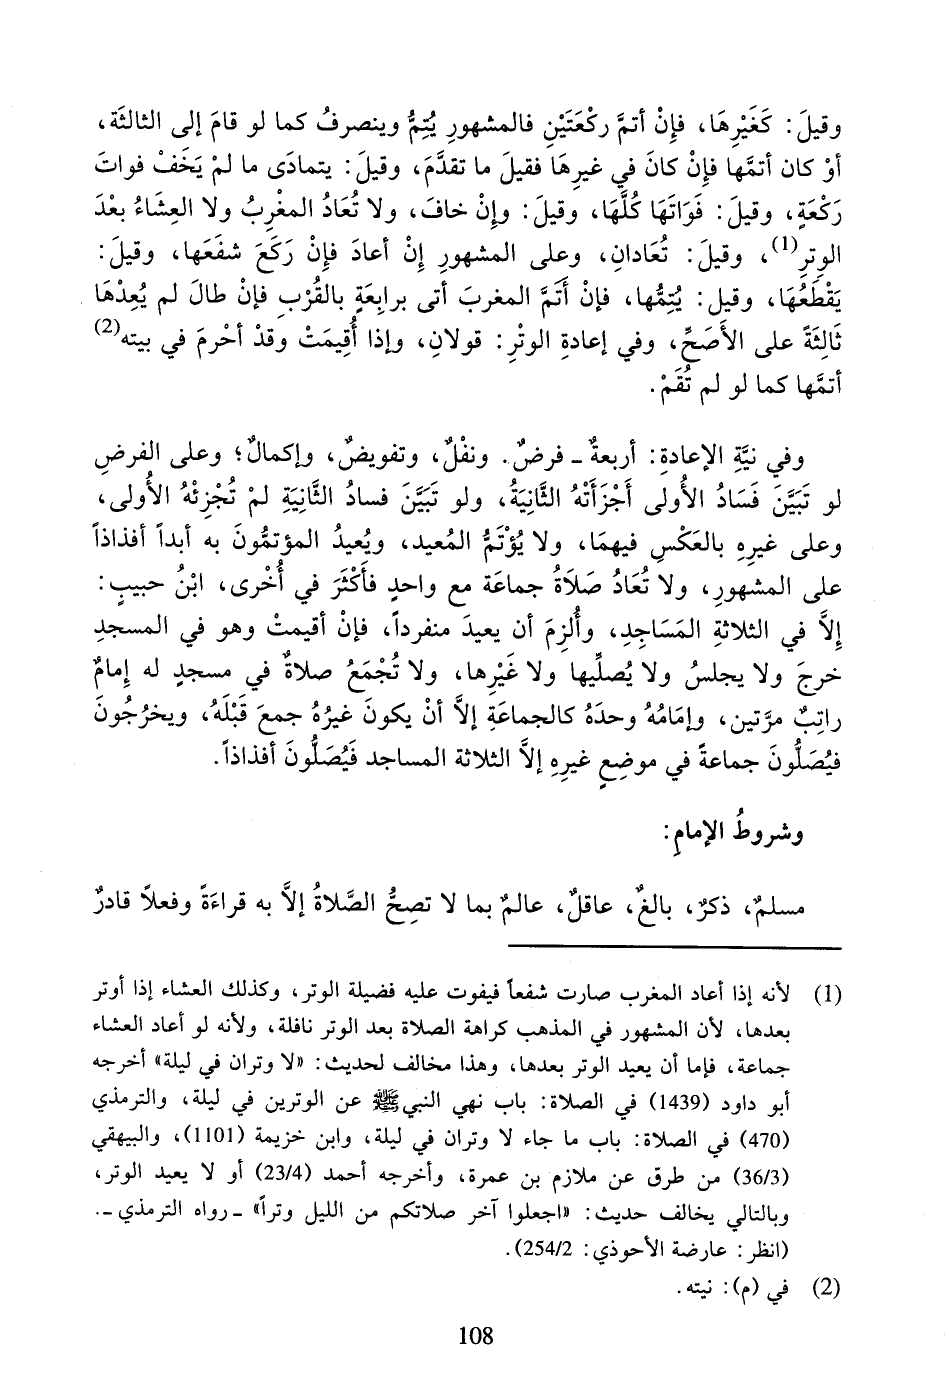 وقيلَ: كَغَيْرِهَا، فإِنْ أتمَّ ركْعَتَيْنِ فالمشهورِ يُتِمُّ وينصرفُ كما لو قامَ إلى الثالثة،
أوْ كان أتمَّها فإِنْ كانَ في غيرِهَا فقيلَ ما تقدَّمَ، وقيلَ: يتمادَى ما لمْ يَخَفْ فواتَ
رَكْعَةٍ، وقيلَ: فَوَاتَهَا كُلَّهَا، وقيلَ: وإِنْ خافَ، ولا تُعَادُ المغْرِبُ ولا العِشَاءُ بعْدَ
الوِترِ(1)، وقيلَ: تُعَادانِ، وعلى المشهورِ إِنْ أعادَ فإِنْ رَكَعَ شفَعَها، وقيلَ:
يَقْطَعُهَا، وقيل: يُتِمُّها، فإِنْ أَتَمَّ المغربَ أتى برابِعَةٍ بالقُرْبِ فإِنْ طالَ لم يُعِدْهَا
ثَالِثَةً على الأَصَحِّ، وفي إعادةِ الوتْرِ: قولانِ، وإذا أُقِيمَتْ وقدْ أحْرمَ في بيته(2)
أتمَّها كما لو لم تُقَمْ.
وفي نيَّةِ الإعادةِ: أربعةٌ ـ فرضٌ. ونفْلٌ، وتفويضٌ، وإكمالٌ؛ وعلى الفرضِ
لو تَبَيَّنَ فَسَادُ الأُولى أَجْزَأَتْهُ الثَّانِيَةُ، ولو تَبَيَّنَ فسادُ الثَّانِيَةِ لمْ تُجْزِئْهُ الأُولى،
وعلى غيرِهِ بالعَكْسِ فيهِمَا، ولا يُؤْتَمُّ المُعيد، ويُعيدُ المؤتمُّونَ به أبداً أفذاذاً
على المشهورِ، ولا تُعَادُ صَلَاةُ جماعَة مع واحدٍ فأكْثَرَ في أُخْرى، ابْنُ حبيبٍ:
إلَّا في الثلاثةِ المَسَاجِدِ، وأُلزِمَ أن يعيدَ منفرداً، فإِنْ أقيمتْ وهو في المسجدِ
خرجَ ولا يجلسُ ولا يُصلِّيها ولا غَيْرِها، ولا تُجْمَعُ صلاةٌ في مسجدٍ له إِمامٌ
راتِبٌ مرَّتين، وإِمَامُهُ وحدَهُ كالجماعَةِ إلاَّ أنْ يكونَ غيرُهُ جمعَ قَبْلَهُ، ويخرُجُونَ
فيُصَلُّونَ جماعةً في موضِعٍ غيرِهِ إلاَّ الثلاثة المساجد فَيُصَلُّونَ أفذاذاً.
وشروطُ الإمامِ:
مسلمٌ، ذكرٌ، بالغٌ، عاقلٌ، عالمٌ بما لا تصِحُّ الصَّلاةُ إلاَّ به قراءَةً وفعلاً قادرٌ
(1) لأنه إذا أعاد المغرب صارت شفعاً فيفوت عليه فضيلة الوتر، وكذلك العشاء إذا أوتر
بعدها، لأن المشهور في المذهب كراهة الصلاة بعد الوتر نافلة، ولأنه لو أعاد العشاء
جماعة، فإما أن يعيد الوتر بعدها، وهذا مخالف لحديث: «لا وتران في ليلة» أخرجه
أبو داود (1439) في الصلاة: باب نهي النبي ﷺ عن الوترين في ليلة، والترمذي
(470) في الصلاة: باب ما جاء لا وتران في ليلة، وابن خزيمة (1101)، والبيهقي
(36/3) من طرق عن ملازم بن عمرة، وأخرجه أحمد (23/4) أو لا يعيد الوتر،
وبالتالي يخالف حديث: «اجعلوا آخر صلاتكم من الليل وتراً» ـ رواه الترمذي ـ.
(انظر: عارضة الأحوذي: 254/2).
(2) في (م): نيته.
108